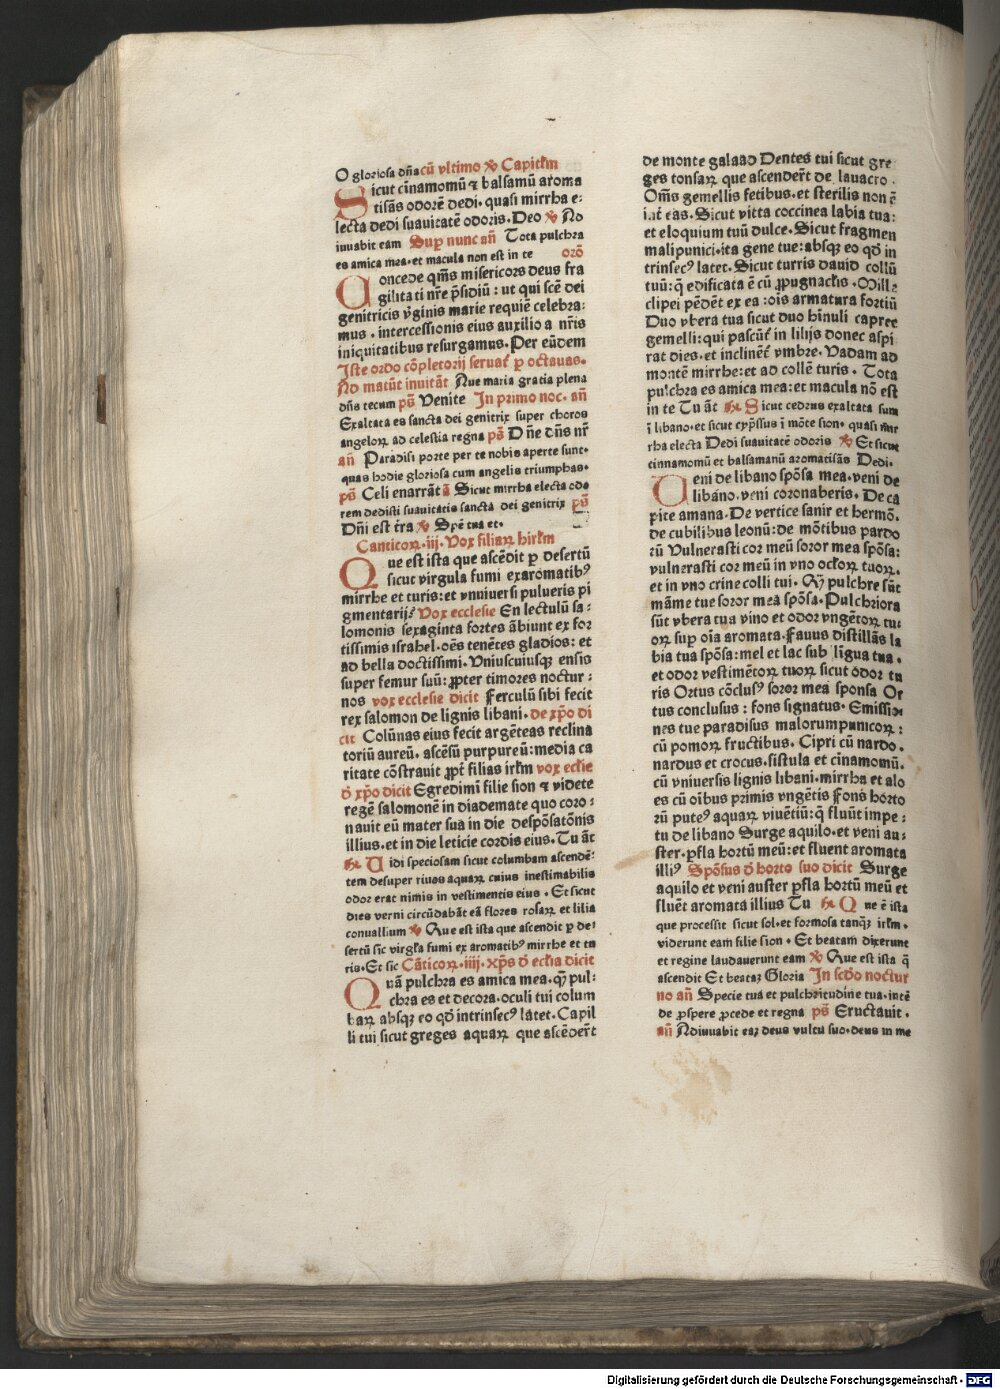 O gloriosa dn̄a cū vltimo ꝟ Capitłm
Sicut cīnamomū ⁊ balsamū aroma
tisās odorē dedi. quasi mirrha e⸗
lecta dedi suauitatē odoris. Deo ꝟ Ad
iuuabit eam Suꝑ nunc an̄ Tota pulchra
es amica mea. et macula non est in te orō
Concede qm̄s misericors deus fra
gilitati nr̄e p̄sidiū : ut qui scē dei
genitricis v̄ginis marie requiē celebra⸗
mus . intercessionis eius auxilio a nr̄is
iniquitatibus resurgamus. Per eūdem
Iste ordo cōpletorij seruat᷑ ꝑ octauas.
Ad matūt inuitāt Aue maria gratia plena
dn̄s tecum ps̄ Venite In primo noc. an̄
Exaltata es sancta dei genitrix super choros
angeloꝝ ad celestia regna ps̄ Dn̄e dn̄s nr̄
an̄ Paradisi porte per te nobis aperte sunt.
quas hodie gloriosa cum angelis triumphas.
ps̄ Celi enarrāt ā Sicut mirrha electa odo
rem dedisti suauitatis sancta dei genitrix ps̄
Dn̄i est t̄ra ꝟ Spē tua et.
Canticoꝝ. iij. Vox filiaꝝ hirłm
Que est ista que ascēdit ꝑ desertū
sicut virgula fumi exaromatibꝰ
mirrhe et turis: et vnuiuersi pulueris pi
gmentarijꝰ Vox ecclesie En lectulū sa⸗
lomonis sexaginta fortes ābiunt ex for
tissimis israhel. oēs tenētes gladios: et
ad bella doctissimi. Vniuscuiusqꝫ ensis
super femur suū: ꝓpter timores noctur⸗
nos vox ecclesie dicit Ferculū sibi fecit
rex salomon de lignis libani. de xp̄o di
cit Colūnas eius fecit argēteas reclina
toriū aureū. ascēsū purpureū: media ca
ritate cōstrauit ꝓpt᷑ filias irłm vox eccłie
d̄ xp̄o dicit Egredimī filie sion ⁊ videte
regē salomonē in diademate quo coro⸗
nauit eū mater sua in die despōsatōnis
illius. et in die leticie cordis eius. Tu āt
℟ Uidi speciosam sicut columbam ascendē⸗
tem desuper riuos aquaꝝ cuius inestimabilis
odor erat nimis in vestimentis eius . Et sicut
dies verni circūdabāt eā flores rosaꝝ et lilia
conuallium ꝟ Que est ista que ascendit ꝑ de⸗
sertū sic virgła fumi ex aromatibꝰ mirrhe et tu
ris. Et sic Cāticoꝝ. iiij. xp̄s d̄ eccłia dicit
Quā pulchra es amica mea. qꝫ̄ pul⸗
chra es et decora. oculi tui colum
baꝝ absqꝫ eo qd̄ intrinsecꝰ latet. Capil
li tui sicut greges aquaꝝ que ascēder̄t
de monte galaad Dentes tui sicut gre
ges tonsaꝝ que ascender̄t de lauacro .
Om̄s gemellis fetibus. et sterilis non ē
int᷑ eas. Sicut vitta coccinea labia tua:
et eloquium tuū dulce. Sicut fragmen
malipunici. ita gene tue: absqꝫ eo qd̄ in
trinsecꝰ latet. Sicut turris dauid collū
tuū: q̄ edificata ē cū ꝓpugnacłis . Mille
clipei pēdēt ex ea : oīs armatura fortiū
Duo vbera tua sicut duo hīnuli capree
gemelli: qui pascūt᷑ in lilijs donec aspi
rat dies. et inclinēt᷑ vmbre. Vadam ad
montē mirrhe: et ad collē turis . Tota
pulchra es amica mea: et macula nō est
in te Tu āt ℟ Sicut cedrus exaltata sum
ī libano. et sicut cyp̄ssus ī mōte sion. quasi mir
rha electa Dedi suauitatē odoris ꝟ Et sicut
cinnamomū et balsamanū aromatisās Dedi.
Ueni de libano spōsa mea. veni de
libano. veni coronaberis. De ca
pite amana. De vertice sanir et hermō.
de cubilibus leonū: de mōtibus pardo
rū Vulnerasti cor meū soror mea spōsa:
vulnerasti cor meū in vno ocłoꝝ tuoꝝ.
et in vno crine colli tui. Qꝫ̄ pulchre sūt
māme tue soror mea spōsa. Pulchriora
sūt vbera tua vino et odor vngētoꝝ tu⸗
oꝝ suꝑ oīa aromata. Fauus distillās la
bia tua spōsa: mel et lac sub līgua tua.
et odor vestimētoꝝ tuoꝝ sicut odor tu
ris Ortus cōclusꝰ soror mea sponsa Or
tus conclusus : fons signatus. Emissio
nes tue paradisus malorumpunicoꝝ :
cū pomoꝝ fructibus. Cipri cū nardo.
nardus et crocus. fistula et cīnamomū.
cū vniuersis lignis libani. mirrha et alo
es cū oībus primis vngētis Fons horto
rū puteꝰ aquaꝝ viuētiū: q̄ fluūt impe⸗
tu de libano Surge aquilo. et veni au⸗
ster. ꝑfla hortū meū: et fluent aromata
illiꝰ Spōsus d̄ horto suo dicit Surge
aquilo et veni auster ꝑfla hortū meū et
fluēt aromata illius Tu ℟ Que ē ista
que processit sicut sol. et formosa tanqꝫ irłm.
viderunt eam filie sion . Et beatam dixerunt
et regine laudauerunt eam ꝟ Que est ista q̄
ascendit Et beataꝫ Gloria In scd̄o noctur
no an̄ Specie tua et pulchritudine tua. intē
de ꝓspere ꝓcede et regna ps̄ Eructauit .
an̄ Adiuuabit eaꝫ deus vultu suo. deus in me
Digitalisierung gefördert durch die Deutsche Forschungsgemeinschaft - DFG